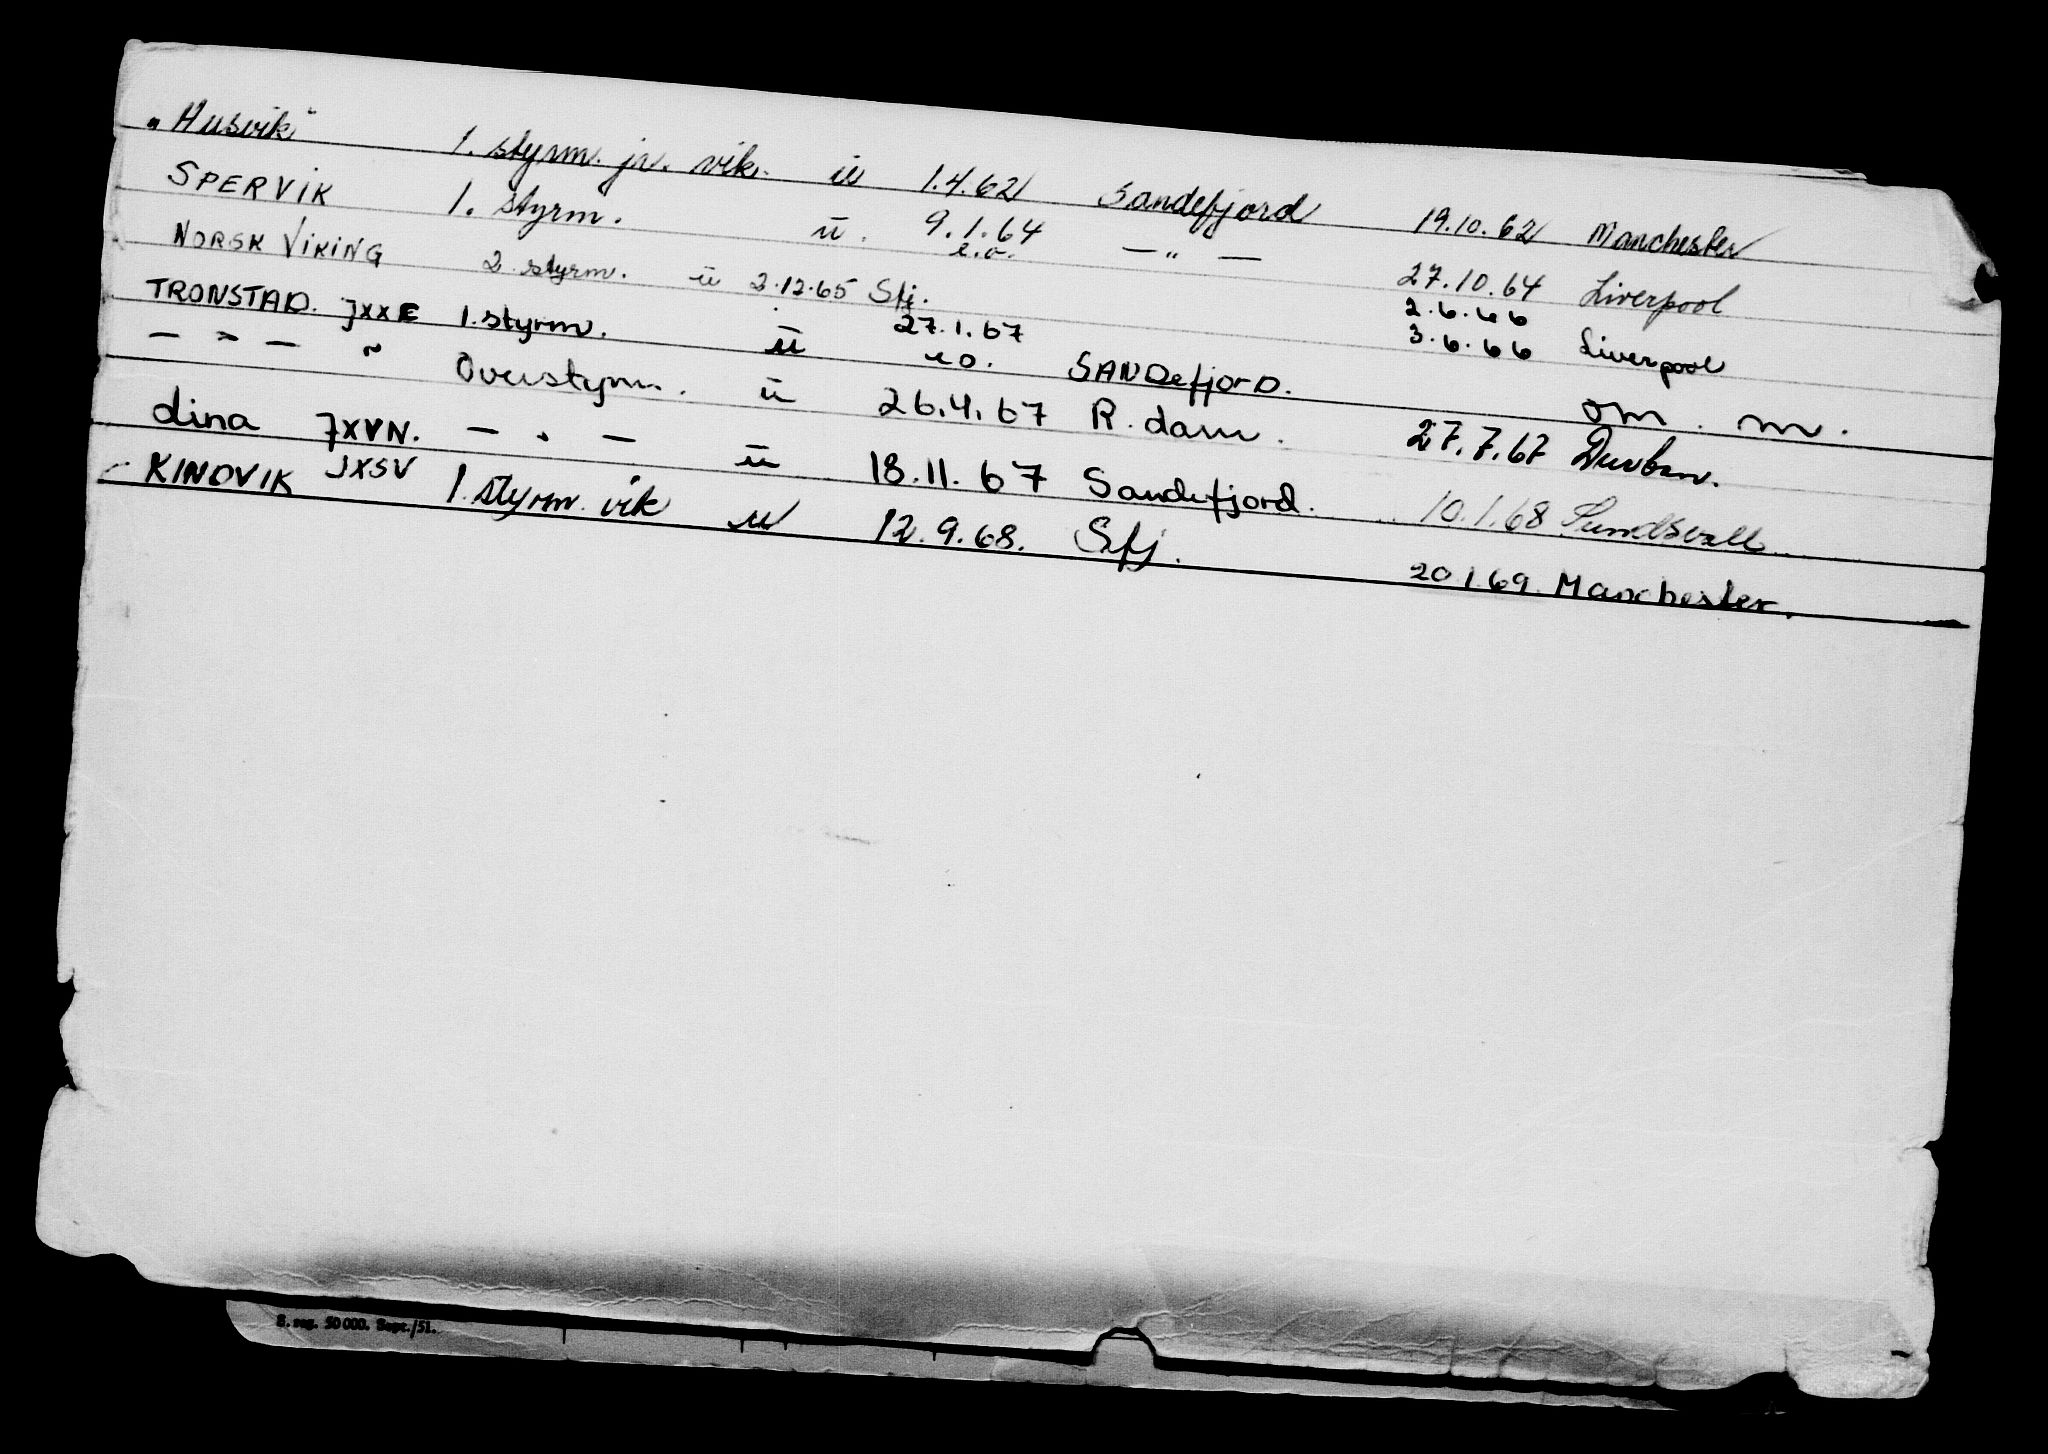 "Husvik" 1. styrm. jr. vik. u 1.4.62 Sandefjord 19.10.62 Manchester
SPERVIK 1. styrm. u. 9.1.64 e.o. — " — 27.10.64 Liverpool
NORSK VIKING 2. styrm. u 2.12.65 Sfj. 2.6.66 3.6.66 Liverpool
TRONSTAD. JXXE 1. styrm. u 27.1.67 e o. SANDefjorD. om. m.
— " — " Overstyrm. u 26.4.67 R.dam. 27.7.67 Durban.
dina JXVN. — " — u 18.11.67 Sandefjord. 10.1.68 Sundsvall
KINDVIK JXSV 1. styrm. vik u 12.9.68. Sfj. 20.1.69. Manchester.
S. reg. 50 000. Sept./51.